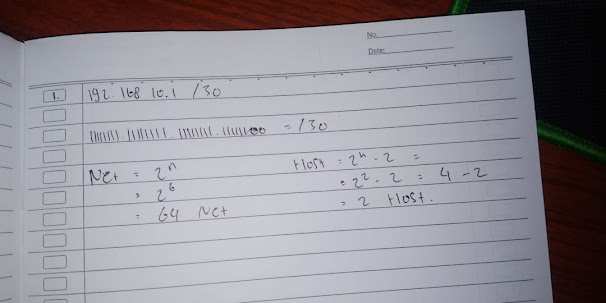 No.
Date:
1. 192. 168 10.1 /30
11111111. 11111111. 11111111. 11111100 = /30
Net = 2^n Host = 2^n - 2 =
= 2^6 = 2^2 - 2 = 4 - 2
= 64 Net = 2 Host.